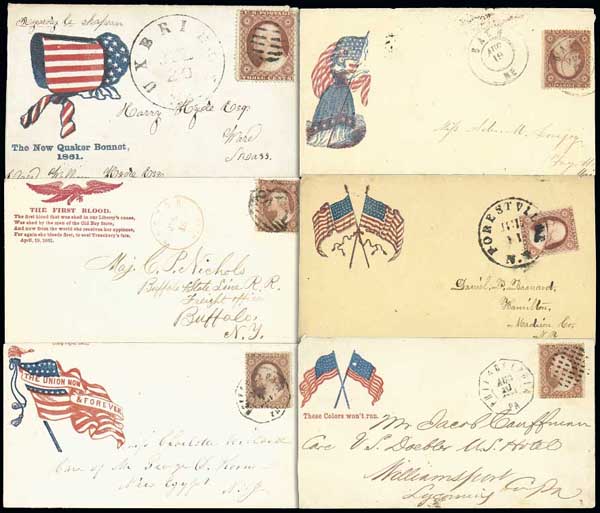 UXBRIDGE
The New Quaker Bonnet,
1861.
Harry Hyde Esq
Ware
Mass.
BATH
AUG
19
ME
THE FIRST BLOOD.
The first blood that was shed in our Liberty's cause,
Was shed by the men of the Old Bay State,
And now from the world she receives her applause,
For again she bleeds first, to seal Treachery's fate.
April, 19, 1861.
Maj. C. P. Nichols
Buffalo & State Line R. R.
Freight office
Buffalo,
N. Y.
FORESTVILLE
N.Y.
Daniel D. Barnard,
Hamilton,
Madison Co.
N.Y.
THE UNION NOW
& FOREVER
Care of Mr George S.
New Egypt
N. J.
These Colors won't run.
PHILADELPHIA
AUG
20
PA
Mr Jacob Cauffman
Care V. S. Doebler U.S. Hotel
Williamsport
Lycoming Co Pa.